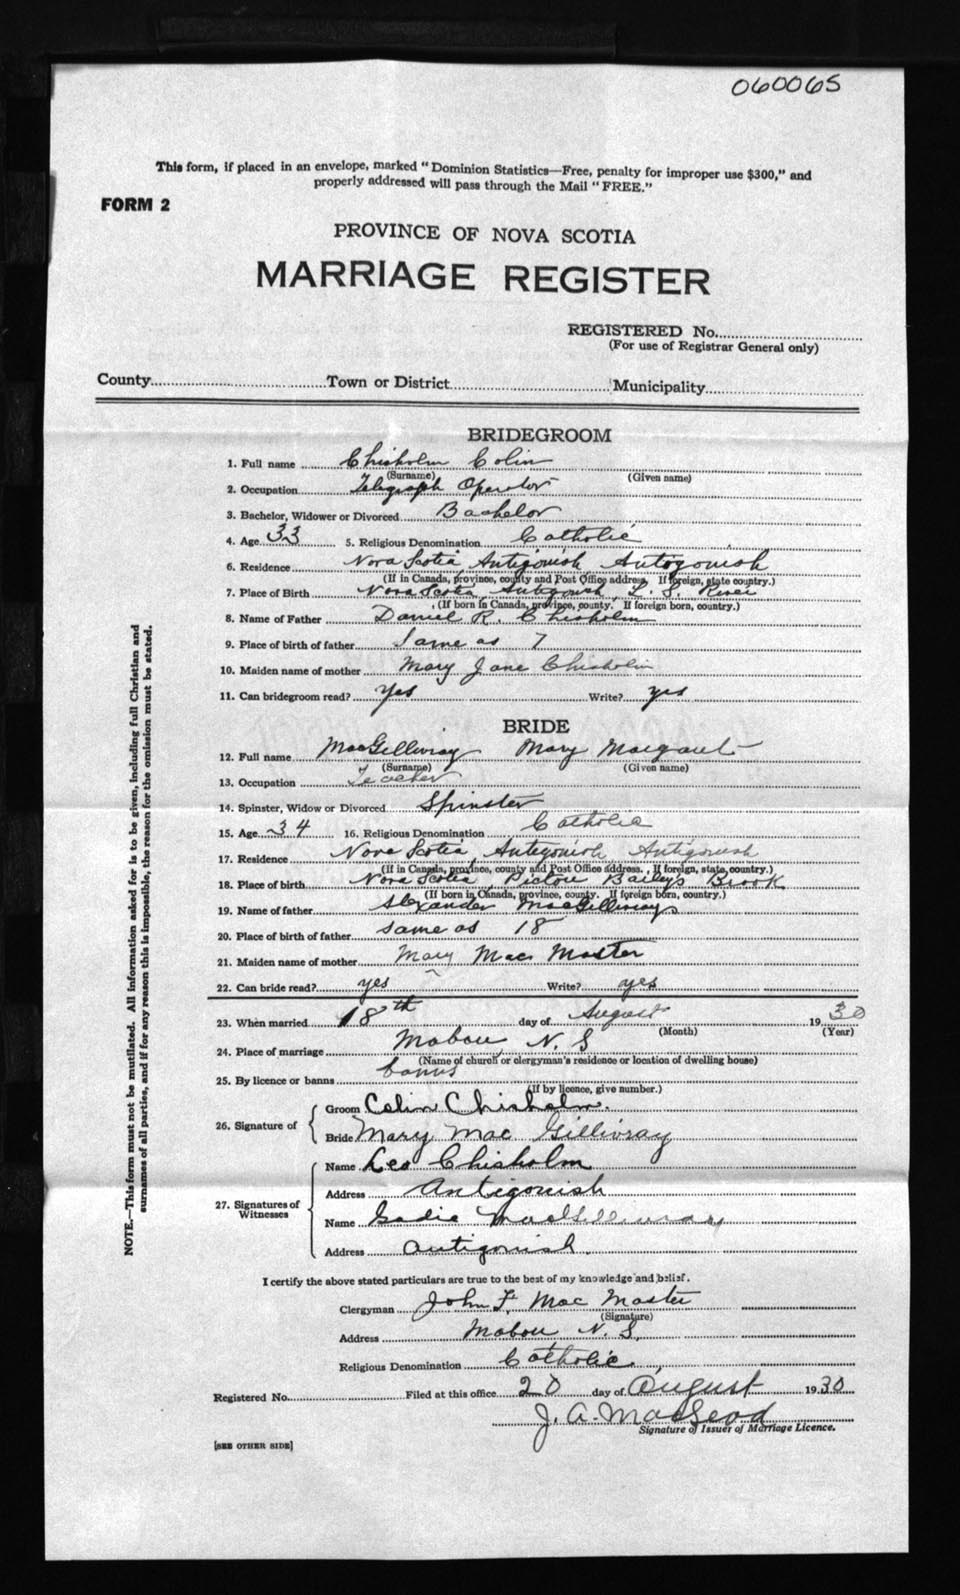 060065
This form, if placed in an envelope, marked "Dominion Statistics—Free, penalty for improper use $300," and
properly addressed will pass through the Mail "FREE."
FORM 2
PROVINCE OF NOVA SCOTIA
MARRIAGE REGISTER
REGISTERED No.
(For use of Registrar General only)
County Town or District Municipality
BRIDEGROOM
1. Full name Chisholm Colin
(Surname) (Given name)
2. Occupation Telegraph Operator
3. Bachelor, Widower or Divorced Bachelor
4. Age 33 5. Religious Denomination Catholic
6. Residence Nova Scotia Antigonish Antigonish
(If in Canada, province, county and Post Office address. If foreign, state country.)
7. Place of Birth Nova Scotia Antigonish L. S. River
(If born in Canada, province, county. If foreign born, country.)
8. Name of Father Daniel R. Chisholm
9. Place of birth of father Same as 7
10. Maiden name of mother Mary Jane Chisholm
11. Can bridegroom read? Yes Write? yes
BRIDE
12. Full name MacGillivray Mary Margaret
(Surname) (Given name)
13. Occupation Teacher
14. Spinster, Widow or Divorced Spinster
15. Age 34 16. Religious Denomination Catholic
17. Residence Nova Scotia, Antigonish, Antigonish
(If in Canada, province, county and Post Office address. If foreign, state country.)
18. Place of birth Nova Scotia, Pictou Bailey's Brook
(If born in Canada, province, county. If foreign born, country.)
19. Name of father Alexander MacGillivray
20. Place of birth of father same as 18
21. Maiden name of mother Mary Mac Master
22. Can bride read? yes Write? yes
23. When married 18th day of August 1930
(Month) (Year)
24. Place of marriage Mabou N. S
(Name of church or clergyman's residence or location of dwelling house)
25. By licence or banns banns
(If by licence, give number.)
26. Signature of
Groom Colin Chisholm.
Bride Mary Mac Gillivray
27. Signatures of
Witnesses
Name Leo Chisholm
Address Antigonish
Name Sadie MacGillivray
Address Antigonish.
I certify the above stated particulars are true to the best of my knowledge and belief.
Clergyman John F. Mac Master
(Signature)
Address Mabou N. S.
Religious Denomination Catholic
Registered No. Filed at this office 20 day of August 1930
J. A. MacLeod
Signature of Issuer of Marriage Licence.
[SEE OTHER SIDE]
NOTE.—This form must not be mutilated. All information asked for is to be given, including full Christian and
surnames of all parties, and if for any reason this is impossible, the reason for the omission must be stated.